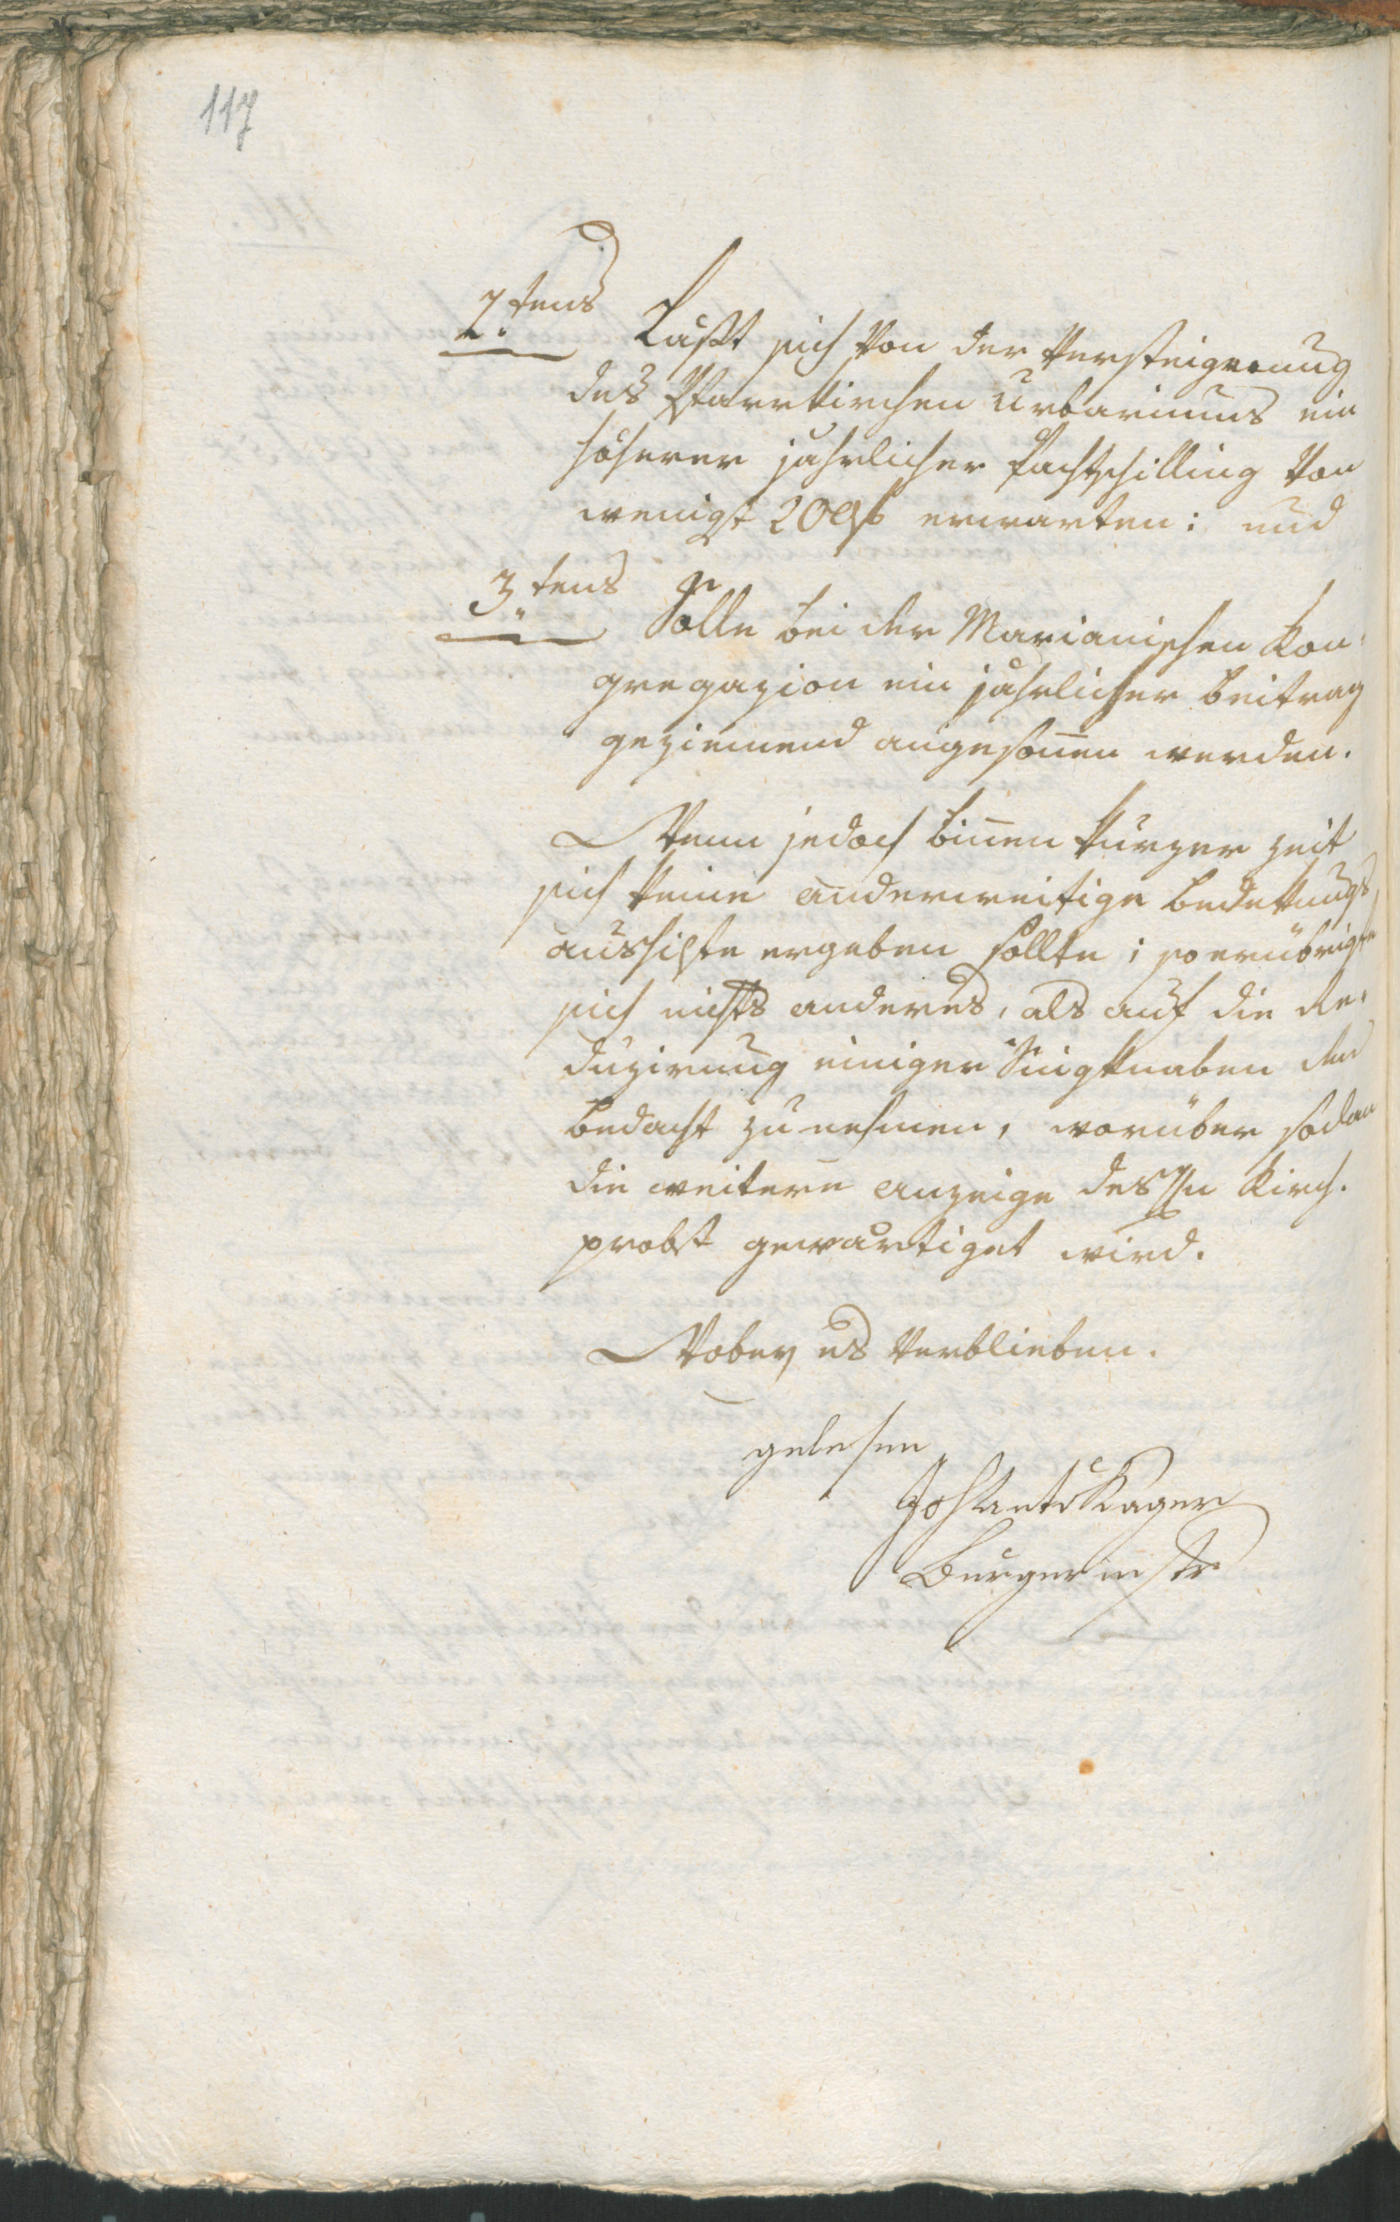 117
2tens Läßt sich von der Versteigerung
des Pfarrkirchen Urbariums ein
höherer jährlicher Pachtschilling von
wenigst 20 f erwarten: und
3tens Solle bei der Marianischen Kon¬
gregazion ein jährlicher Beitrag
geziemend angesonnen werden.
Wenn jedoch binnen kurzer Zeit
sich keine anderweitige Bedekungs
aussichte ergeben sollte; so erübrigte
sich nichts anderes, als auf die Re¬
duzirung einiger Singknaben den
Bedacht zu nehmen, worüber sodan
die weitere Anzeige des Hn Kirch¬
probst gewärtiget wird.
Wobey es verblieben.
gelesen
Joh Kager
Burgermstr